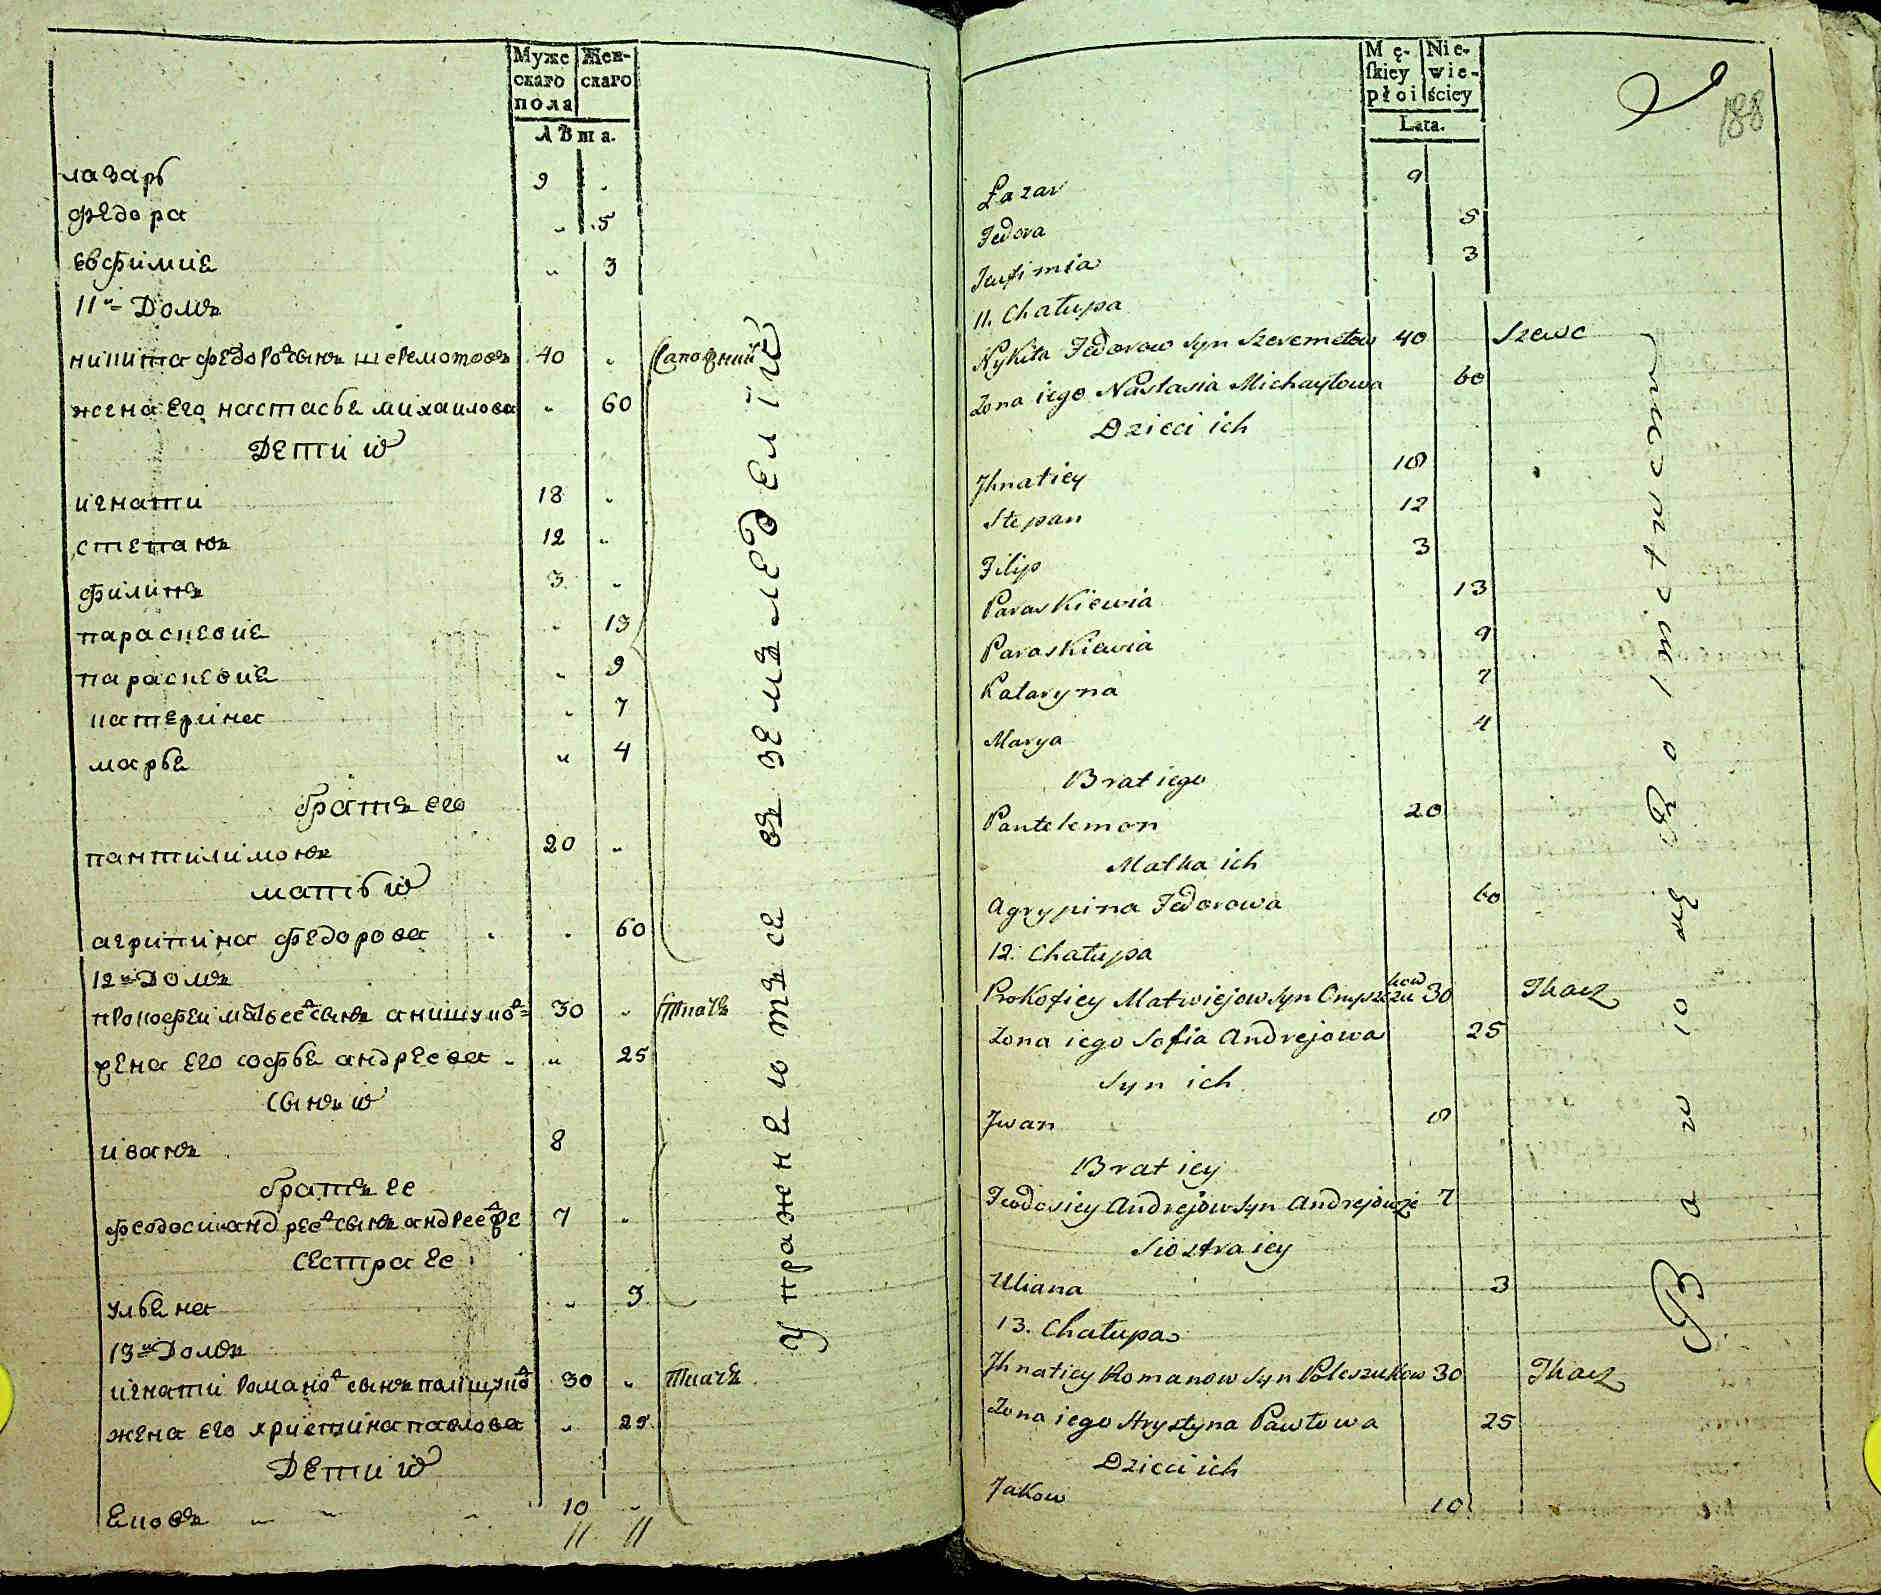 Муже Жен-
скаго скаго
пола
Лѣта.
лазарь 9 „
федора „ 5
евфимие „ 3
11й Домъ
никита федоровъ сынъ шеремотовъ 40 „ Сапожний
жена его настасье михаилова „ 60
Дети их
игнати 18 „
степанъ 12 „
филипъ 3 „
параскевие „ 13
параскевие „ 9
катерина „ 7
марье „ 4
братъ его
пантилимонъ 20 „
мать их
агрипина федорова „ 60
12й Домъ
прокофеи матвеевъ сынъ 30 „ ткачъ
жена его софье андреева „ 25
сынъ их
иванъ 8
братъ ее
феодоси андреевъ сынъ 7 „
сестра ее
ульена „ 3
13й Домъ
игнати романовъ сынъ полищуковъ 30 „ ткачъ
жена его христина павлова „ 25
Дети их
ековъ „ „ „ 10 „
11 11
Упражнеютъсе въ земледелїи
Mę- Nie-
ſkiey wie-
płci ściey
Lata.
188
Łazar 9
Fedora 5
Jeufimia 3
11. Chałupa
Nykita Fedorow syn Szeremetow 40 Szewc
Zona iego Nastasia Michayłowa 60
Dzieci ich
Jhnatiey 18
Stepan 12
Filip 3
Paraskiewia 13
Paraskiewia 9
Kataryna 7
Marya 4
Brat iego
Pantelemon 20
Matka ich
Agrypina Fedorowa 60
12. Chałupa
Prokofiey Matwiejow syn 30 Tkacz
Zona iego Sofia Andrejowa 25
Syn ich
Jwan 8
Brat iey
Feodosiey Andrejow syn 7
Siostra iey
Uliana 3
13. Chałupa
Jhnatiey Romanow syn Poleszukow 30 Tkacz
Zona iego Hrystyna Pawłowa 25
Dzieci ich
Jakow 10